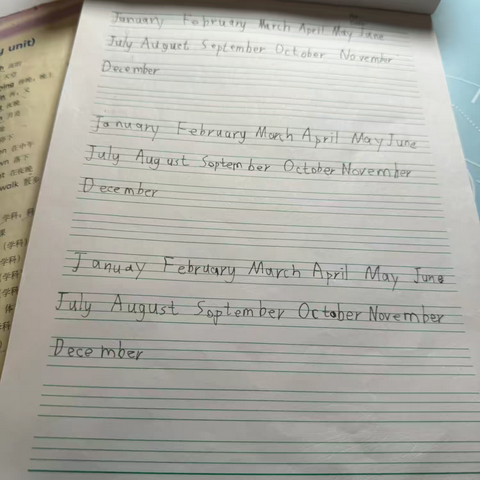 January February March April May June
July August September October November
December
January February March April May June
July August Soptember October November
December
Januay February March April May June
July August Soptember October November
December
y unit)